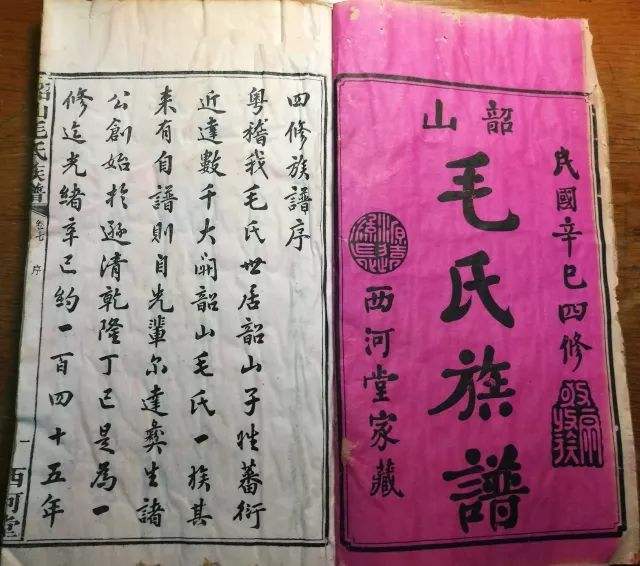 民國辛巳四修
敬宗收族
韶山
毛氏族譜
源遠流長
西河堂家藏
四修族譜序
粵稽我毛氏世居韶山子姓蕃衍
近達數千大開韶山毛氏一族其
来有自譜則自先輩尔達彝生諸
公創始於遜清乾隆丁巳是為一
修迄光緒辛巳約一百四十五年
韶山毛氏族譜
卷七
序
一
西河堂